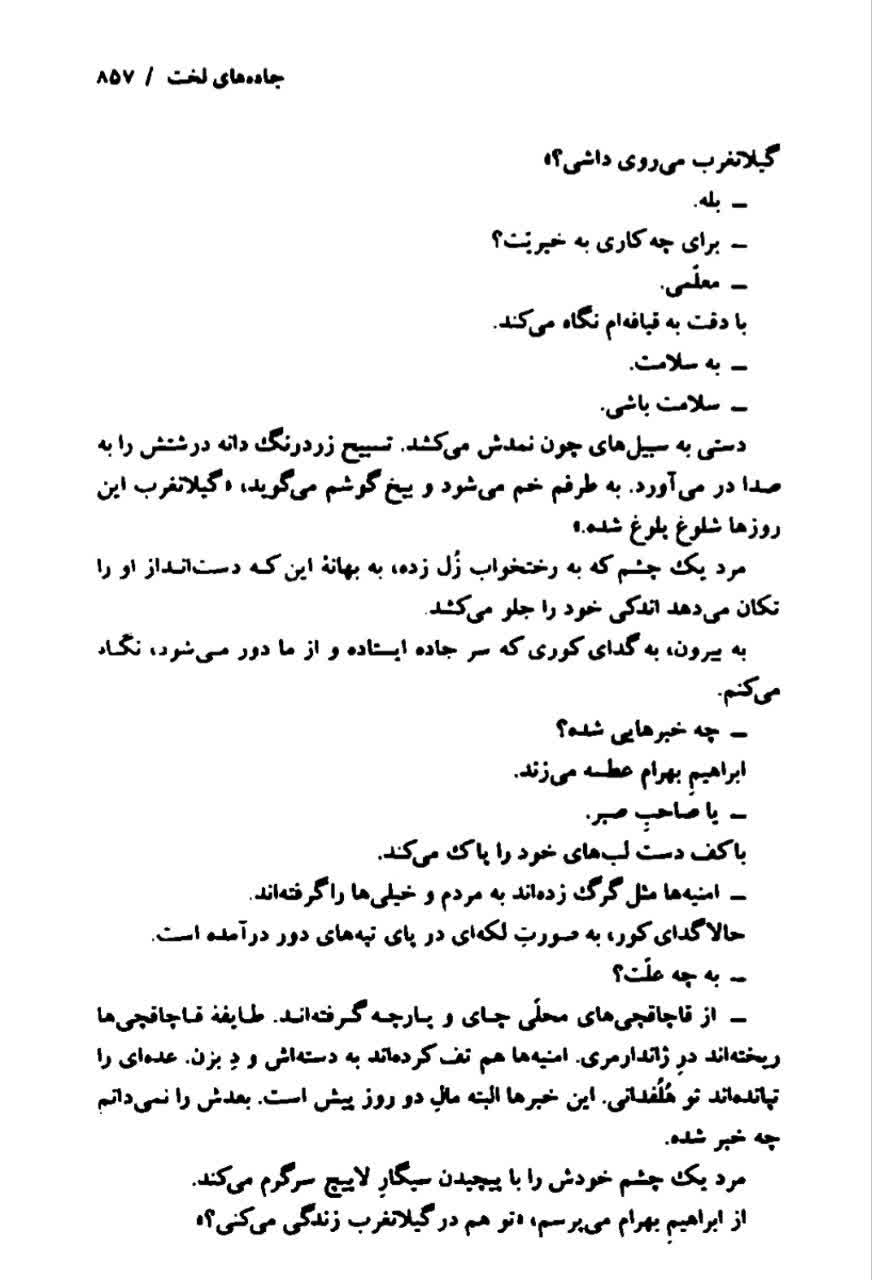 جاده‌های لخت / ۸۵۷
گیلانغرب می‌روی داشی؟»
ـ بله.
ـ برای چه کاری به خیریّت؟
ـ معلّمی.
با دقت به قیافه‌ام نگاه می‌کند.
ـ به سلامت.
ـ سلامت باشی.
دستی به سبیل‌های چون نمدش می‌کشد. تسبیح زردرنگ دانه درشتش را به
صدا در می‌آورد. به طرفم خم می‌شود و بیخ گوشم می‌گوید، «گیلانغرب این
روزها شلوغ پلوغ شده.»
مرد یک چشم که به رختخواب زُل زده، به بهانهٔ این که دست‌انداز او را
تکان می‌دهد اندکی خود را جلو می‌کشد.
به بیرون، به گدای کوری که سر جاده ایستاده و از ما دور می‌شود، نگاه
می‌کنم.
ـ چه خبرهایی شده؟
ابراهیمِ بهرام عطسه می‌زند.
ـ یا صاحبِ صبر.
با کف دست لب‌های خود را پاک می‌کند.
ـ امنیه‌ها مثل گرگ زده‌اند به مردم و خیلی‌ها را گرفته‌اند.
حالا گدای کور، به صورتِ لکه‌ای در پای تپه‌های دور درآمده است.
ـ به چه علّت؟
ـ از قاچاقچی‌های محلّی چای و پارچه گرفته‌اند. طایفهٔ قاچاقچی‌ها
ریخته‌اند درِ ژاندارمری. امنیه‌ها هم تف کرده‌اند به دسته‌اش و دِ بزن. عده‌ای را
تپانده‌اند تو هُلُفدانی. این خبرها البته مالِ دو روز پیش است. بعدش را نمی‌دانم
چه خبر شده.
مرد یک چشم خودش را با پیچیدن سیگارِ لاپیچ سرگرم می‌کند.
از ابراهیمِ بهرام می‌پرسم، «تو هم در گیلانغرب زندگی می‌کنی؟»